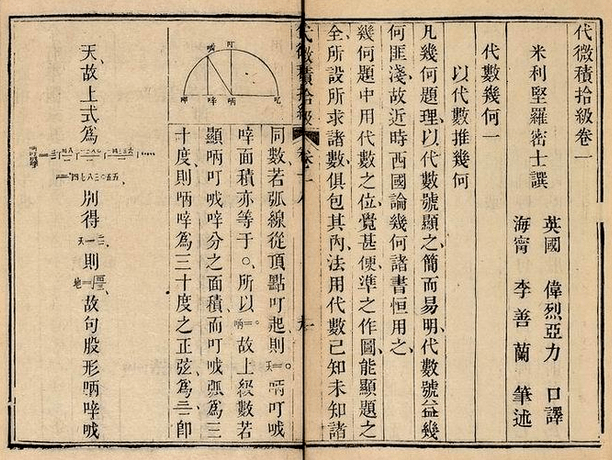 代微積拾級卷一
米利堅羅密士譔
英國 偉烈亞力 口譯
海甯 李善蘭 筆述
代數幾何一
以代數推幾何
凡幾何題理以代數號顯之簡而易明代數號益幾
何匪淺故近時西國論幾何諸書恒用之
幾何題中用代數之位覺甚便準之作圖能顯題之
全所設所求諸數俱包其內法用代數已知未知諸
代微積拾級 卷一
同數若弧線從頂點叮起則 叮戓
㖕面積亦等于〇所以 故上級數若
顯㖕分之面積而叮弧為三
十度則為三十度之正弦為 卽
天故上式為
別得 則 故句股形